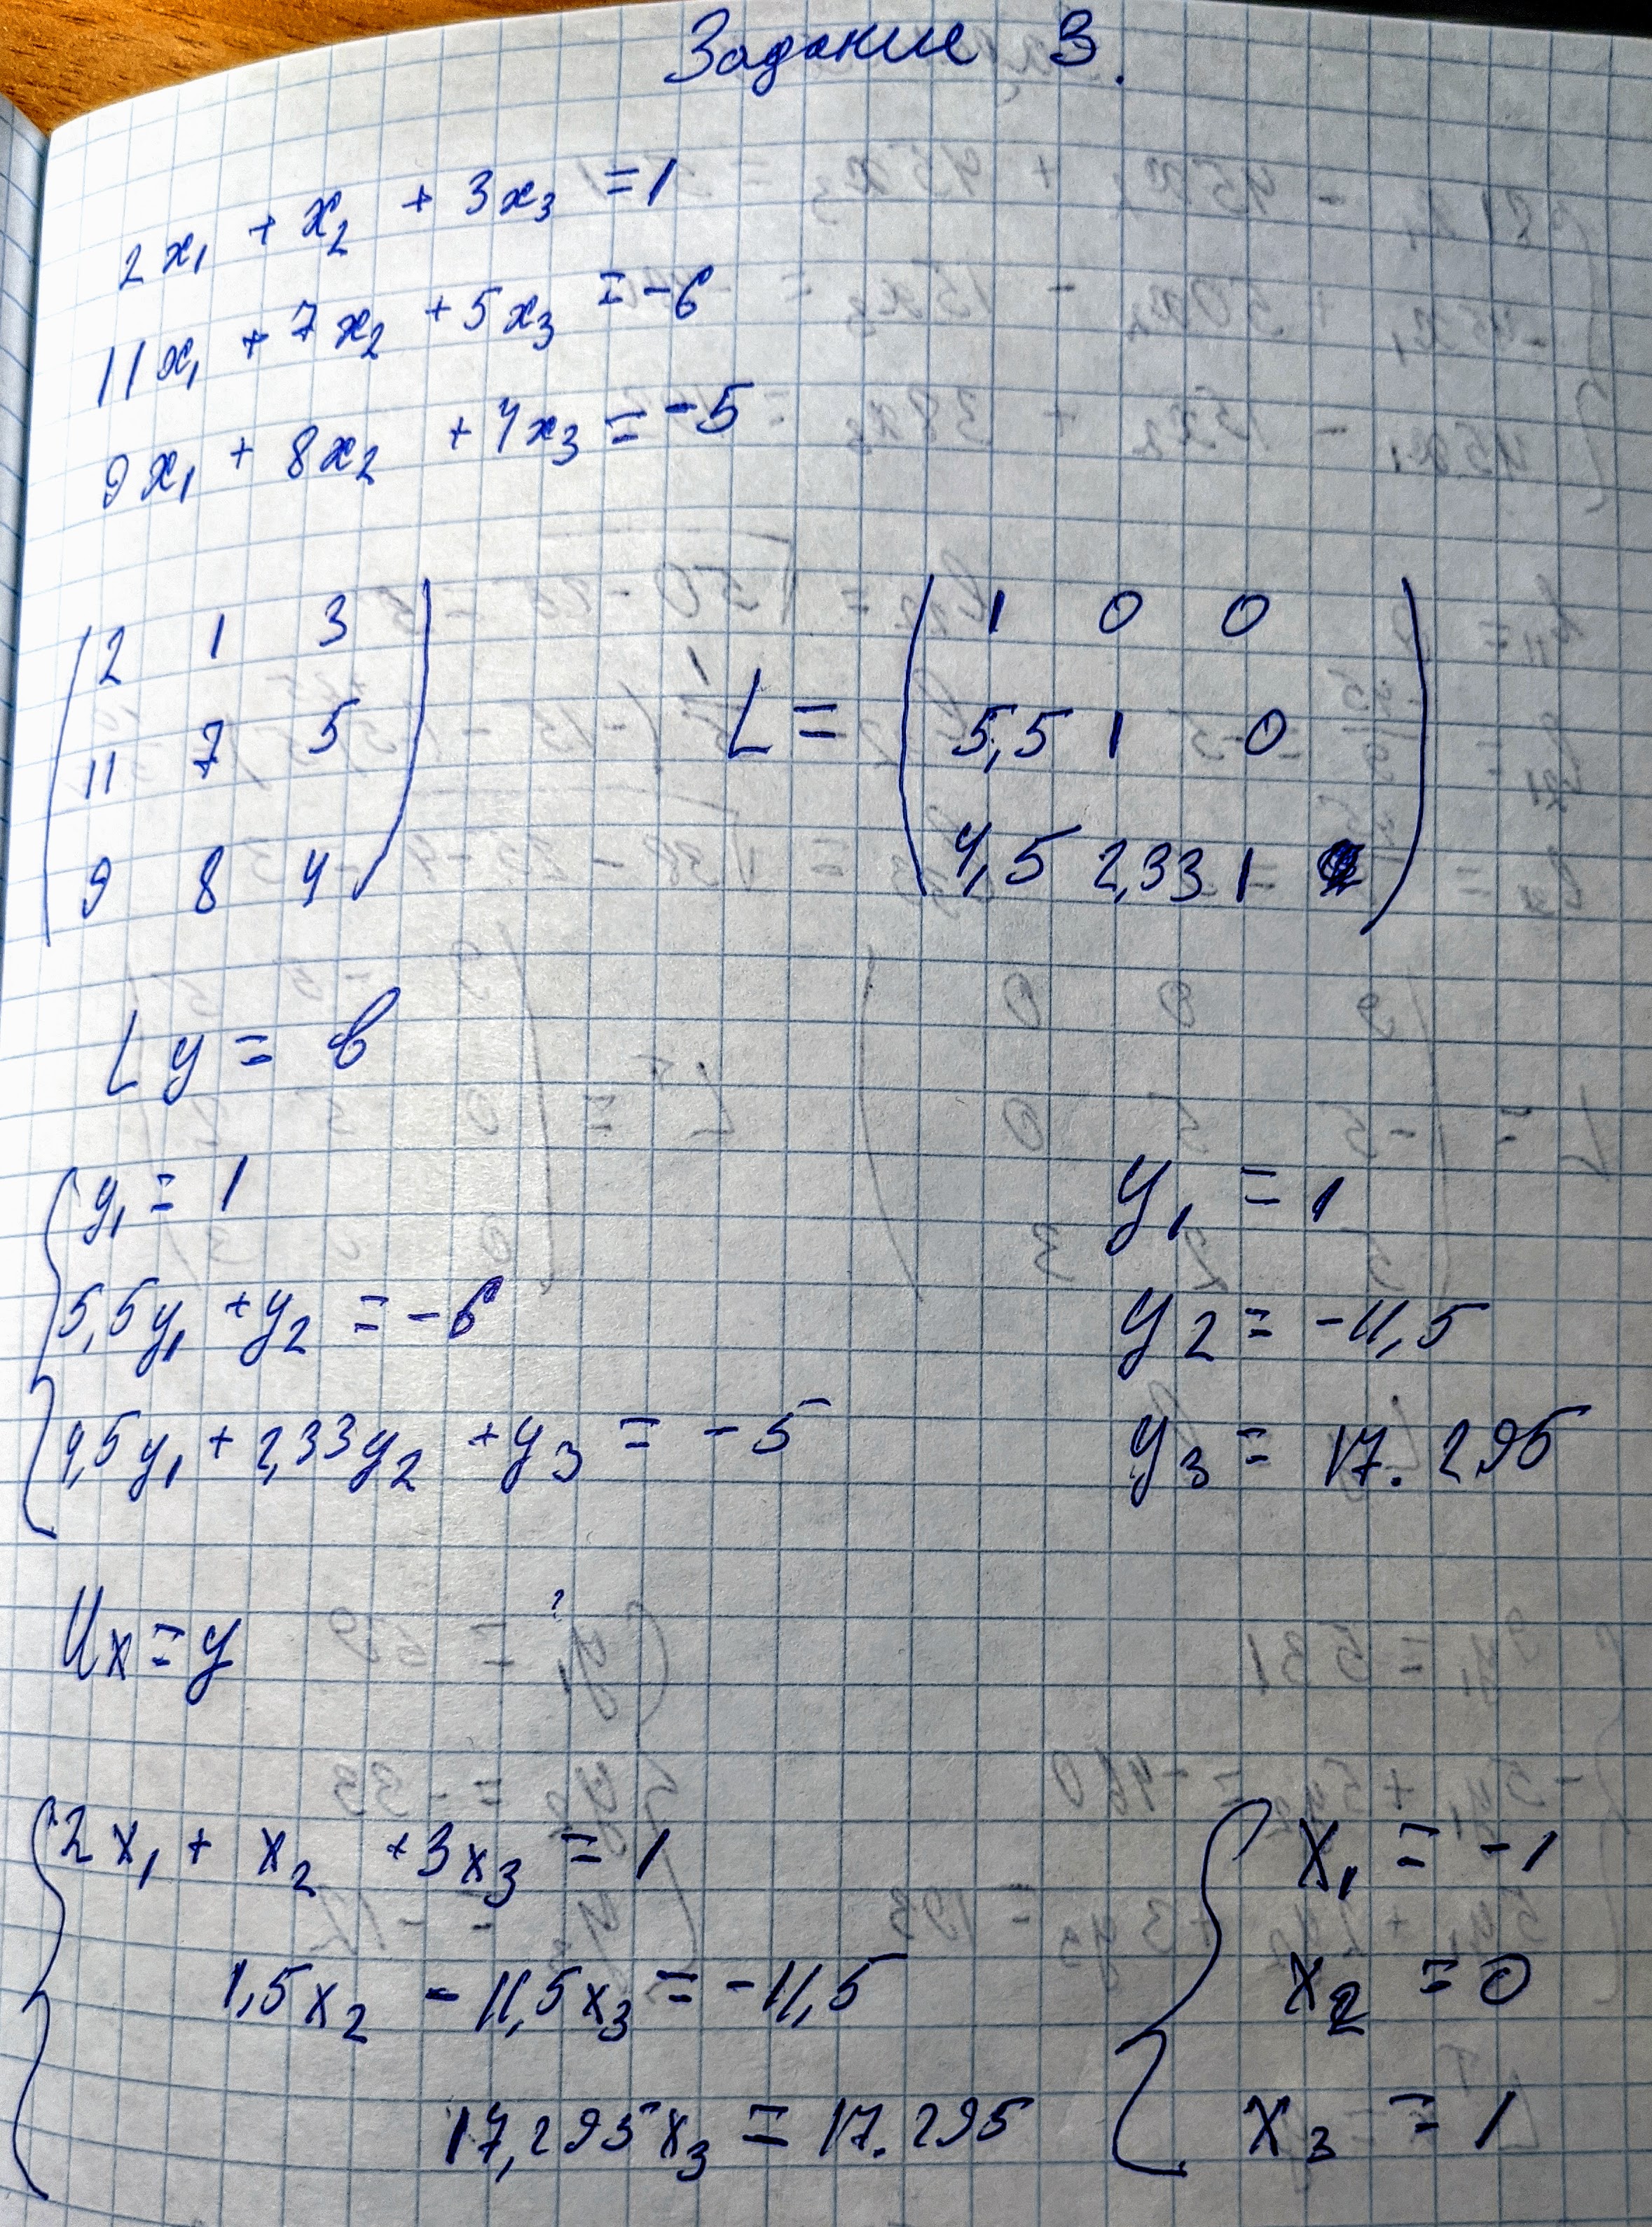 Задание 3.
2x₁ + x₂ + 3x₃ = 1
11x₁ + 7x₂ + 5x₃ = -6
9x₁ + 8x₂ + 4x₃ = -5
2 1 3
11 7 5
9 8 4
L =
1 0 0
5,5 1 0
4,5 2,33 1
Ly = b
y₁ = 1
5,5y₁ + y₂ = -6
4,5y₁ + 2,33y₂ + y₃ = -5
y₁ = 1
y₂ = -11,5
y₃ = 17.295
Ux = y
2x₁ + x₂ + 3x₃ = 1
1,5x₂ - 11,5x₃ = -11,5
17,295x₃ = 17.295
x₁ = -1
x₂ = 0
x₃ = 1